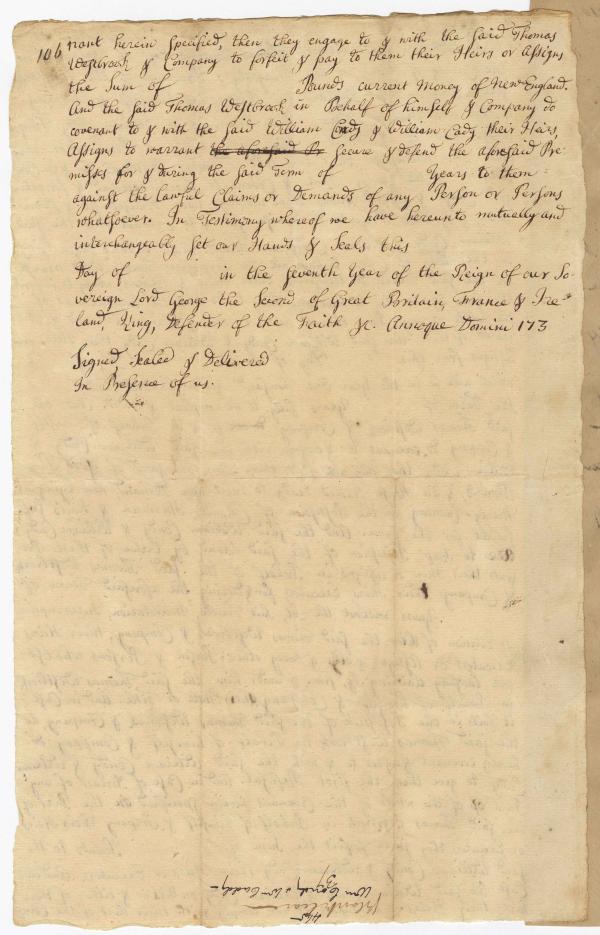 106
nant herein Specified, then they engage to & with the Said Thomas
Westbrook & Company to forfeit & pay to them their Heirs or Assigns
the Sum of Pounds current Money of New England.
And the Said Thomas Westbrook in Behalf of himself & Company do
covenant to & with the Said William & William Cady their Heirs,
Assigns to warrant the aforesaid Pr Secure & defend the aforesaid Pre-
misses for & during the Said Term of Years to them =
against the lawful Claims or Demands of any Person or Persons
whatsoever. In Testimony whereof we have hereunto mutually and
interchangeably Set our Hands & Seals this
Day of in the Seventh Year of the Reign of our So-
vereign Lord George the Second of Great Britain, France & Ire-
land, King, Defender of the Faith &c. Annoque Domini 173
Signed, Sealed & Delivered
in Presence of us.
Wm Cady